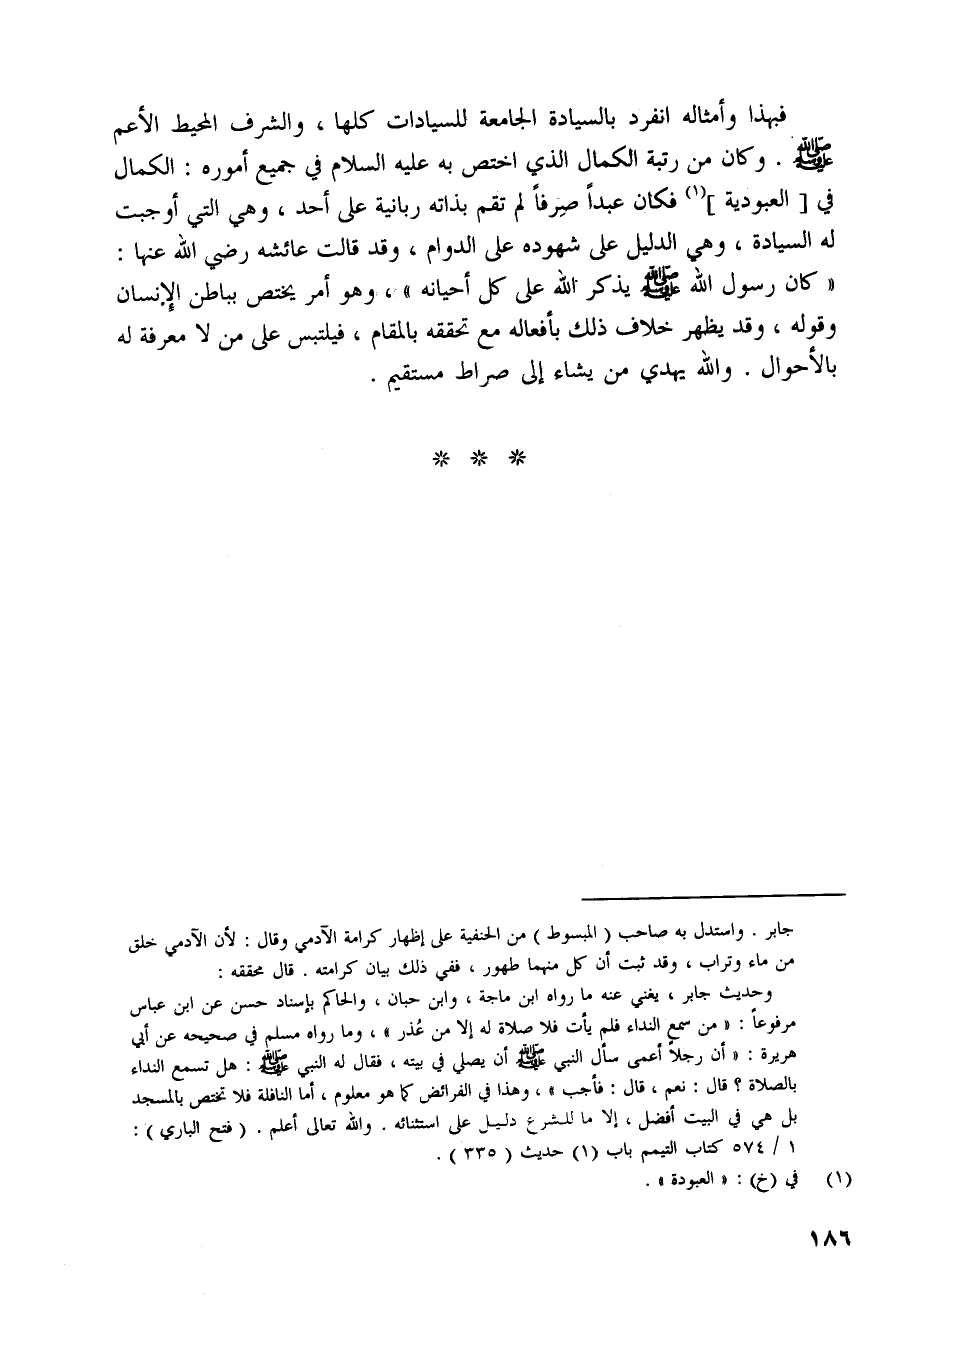 فبهذا وأمثاله انفرد بالسيادة الجامعة للسيادات كلها ، والشرف المحيط الأعم
ﷺ . وكان من رتبة الكمال الذي اختص به عليه السلام في جميع أموره : الكمال
في [ العبودية ](١) فكان عبداً صِرفاً لم تقم بذاته ربانية على أحد ، وهي التي أوجبت
له السيادة ، وهي الدليل على شهوده على الدوام ، وقد قالت عائشه رضي الله عنها :
« كان رسول الله ﷺ يذكر الله على كل أحيانه » ، وهو أمر يختص بباطن الإنسان
وقوله ، وقد يظهر خلاف ذلك بأفعاله مع تحققه بالمقام ، فيلتبس على من لا معرفة له
بالأحوال . والله يهدي من يشاء إلى صراط مستقيم .
* * *
جابر . واستدل به صاحب ( المبسوط ) من الحنفية على إظهار كرامة الآدمي وقال : لأن الآدمي خلق
من ماء وتراب ، وقد ثبت أن كل منهما طهور ، ففي ذلك بيان كرامته . قال محققه :
وحديث جابر ، يغني عنه ما رواه ابن ماجة ، وابن حبان ، والحاكم بإسناد حسن عن ابن عباس
مرفوعاً : « من سمع النداء فلم يأت فلا صلاة له إلا من عُذر » ، وما رواه مسلم في صحيحه عن أبي
هريرة : « أن رجلاً أعمى سأل النبي ﷺ أن يصلي في بيته ، فقال له النبي ﷺ : هل تسمع النداء
بالصلاة ؟ قال : نعم ، قال : فأجب » ، وهذا في الفرائض كما هو معلوم ، أما النافلة فلا تختص بالمسجد
بل هي في البيت أفضل ، إلا ما للشرع دليل على استثنائه . والله تعالى أعلم . ( فتح الباري ) :
١ / ٥٧٤ كتاب التيمم باب (١) حديث ( ٣٣٥ ) .
(١) في (خ) : « العبودة » .
١٨٦